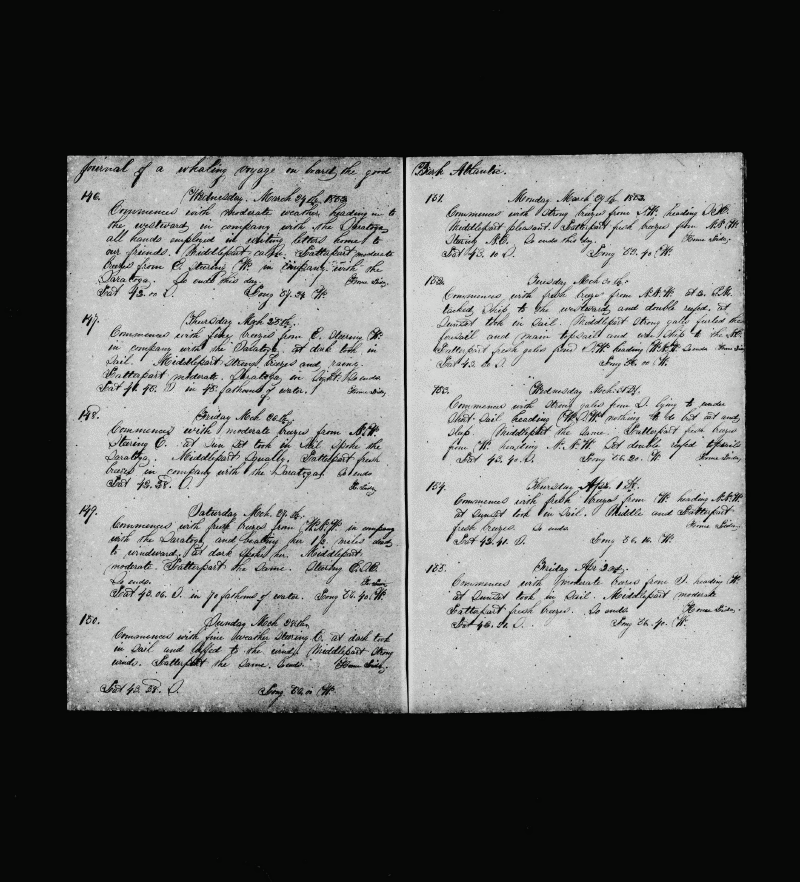 Journal of a whaling voyage on board the good
146. Wednesday. March
Commences with moderate weather, heading in to
the westward in company with the Saratoga
all hands employed in writing letters home to
our friends. Middlepart calm. Latterpart moderate
breezes from E. stearing W. in company with the
Saratoga. So ends this day.
Lat 43. Long W.
147. Thursday Mch
Commences with breezes from E. stearing W.
in company with the Saratoga. at dark took in
sail. Middlepart strong breezes and rainy.
Latterpart moderate. Saratoga in sight. So ends
Lat S in 48. fathoms of water.
148. Friday Mch
Commences with moderate breezes from N.W.
Stearing E. at sun set took in sail spoke the
Saratoga. Middlepart squally. Latterpart fresh
breezes in company with the Saratoga. So ends
Lat 43.38. S.
149. Saturday Mch.
Commences with fresh breezes from W.N.W. in company
with the Saratoga and beating her 1/2 miles dead
to windward. at dark spoke her. Middlepart
moderate Latterpart the same. Stearing
So ends.
Lat 43.06. S. in 70 fathoms of water. Long 66.40. W.
150. Sunday Mch
Commences with fine weather stearing E. at dark took
in sail and luffed to the wind. Middlepart strong
winds. Latterpart the same. So ends.
Lat 43.38. S. Long W.
Bark Atlantic.
151. Monday March
Commences with strong breezes from heading
Middlepart pleasant. Latterpart fresh breezes from N.N.W.
Stearing N.E. So ends this day.
Lat 43. 10 S. Long 65.40. W.
152. Tuesday Mch
Commences with fresh breezes from N.N.W. at
tacked ship to the westward and double reefed. at
sunset took in sail. Middlepart strong gales furled the
foresail and main topsail and wore ship to the
Latterpart fresh gales from heading So ends
Lat 43. S. Long 66. W.
153. Wednesday Mch. 31st.
Commences with strong gales from S. lying to under
short sail heading nothing to do but eat and
sleep Middlepart the same. Latterpart fresh breezes
from W. heading N.N.W. Set double reefed topsails
Lat 43.40. S. Long 66.20. W.
154. Thursday Apr. 1st.
Commences with fresh breezes from W. heading N.N.W.
at sunset took in sail. Middle and Latterpart
fresh breezes. So ends
Lat 43.41. S. Long 66.16. W.
155. Friday Apr 2nd.
Commences with moderate breezes from S. heading W.
at sunset took in sail. Middlepart moderate
Latterpart fresh breezes. So ends
Lat 43. S. Long 66.40. W.